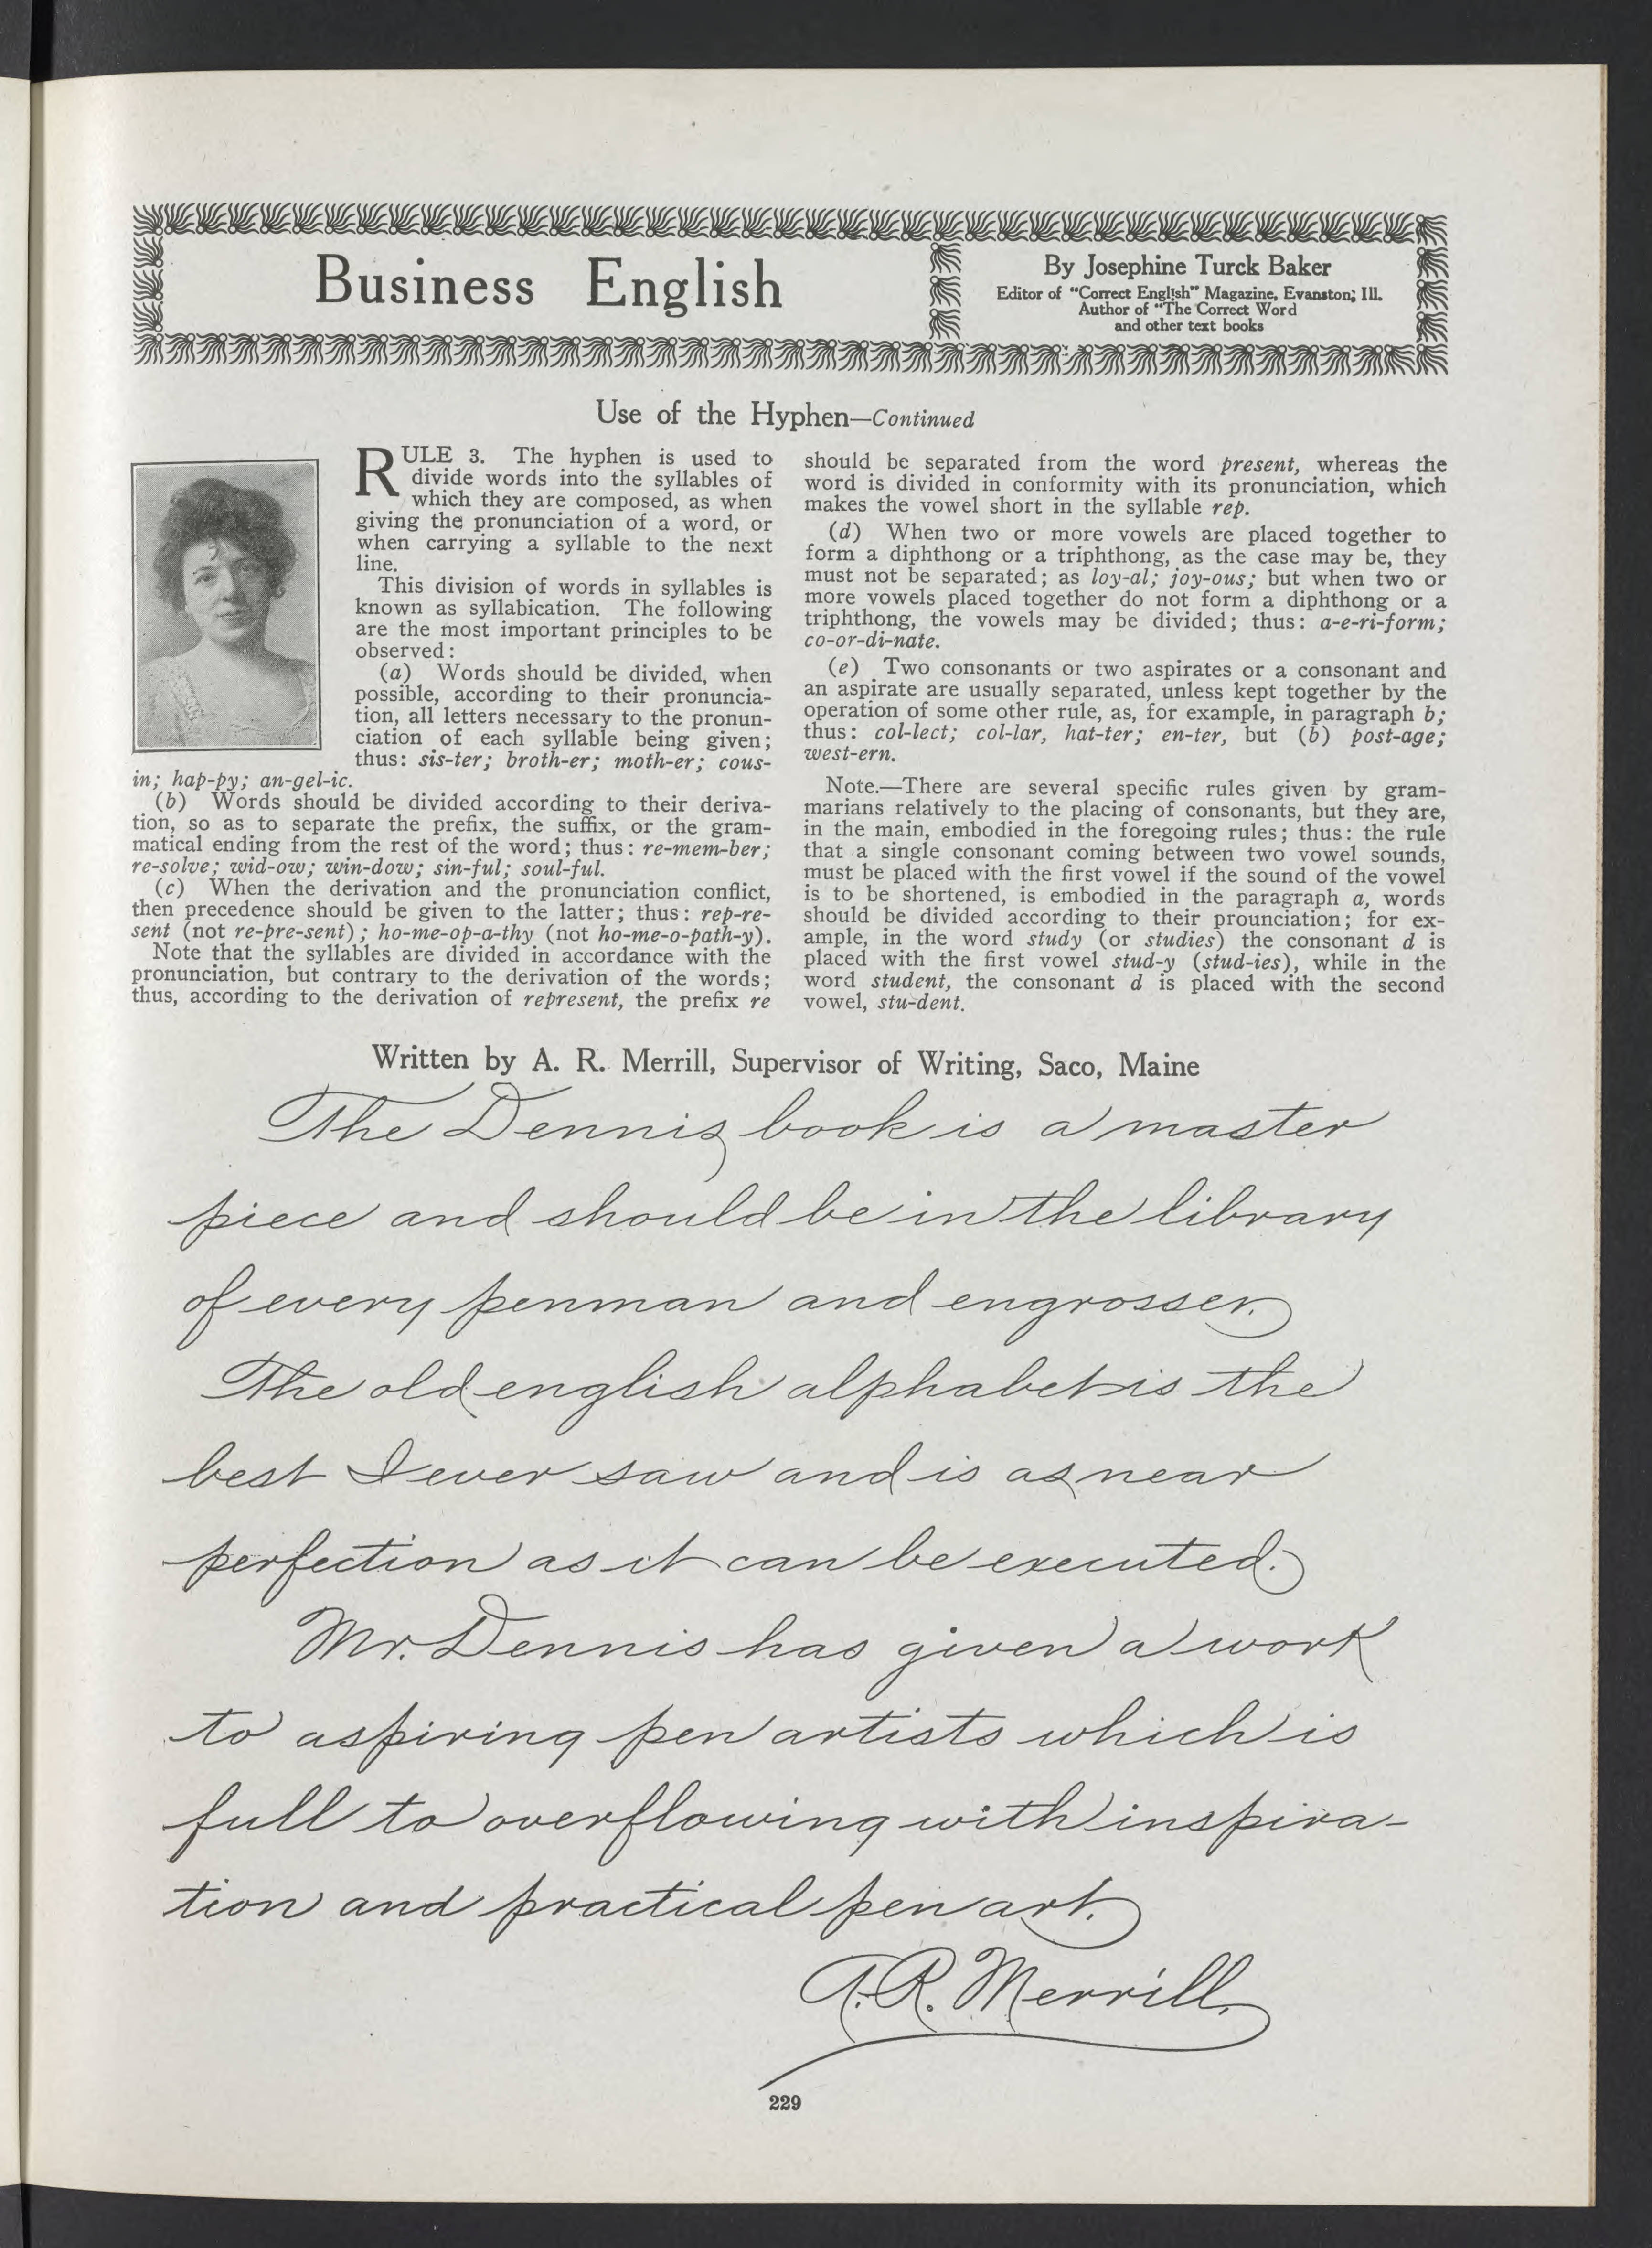 Business English
By Josephine Turck Baker
Editor of "Correct English" Magazine, Evanston, Ill.
Author of "The Correct Word
and other text books
Use of the Hyphen—Continued
RULE 3. The hyphen is used to
divide words into the syllables of
which they are composed, as when
giving the pronunciation of a word, or
when carrying a syllable to the next
line.
This division of words in syllables is
known as syllabication. The following
are the most important principles to be
observed:
(a) Words should be divided, when
possible, according to their pronuncia-
tion, all letters necessary to the pronun-
ciation of each syllable being given;
thus: sis-ter; broth-er; moth-er; cous-
in; hap-py; an-gel-ic.
(b) Words should be divided according to their deriva-
tion, so as to separate the prefix, the suffix, or the gram-
matical ending from the rest of the word; thus: re-mem-ber;
re-solve; wid-ow; win-dow; sin-ful; soul-ful.
(c) When the derivation and the pronunciation conflict,
then precedence should be given to the latter; thus: rep-re-
sent (not re-pre-sent); ho-me-op-a-thy (not ho-me-o-path-y).
Note that the syllables are divided in accordance with the
pronunciation, but contrary to the derivation of the words;
thus, according to the derivation of represent, the prefix re
should be separated from the word present, whereas the
word is divided in conformity with its pronunciation, which
makes the vowel short in the syllable rep.
(d) When two or more vowels are placed together to
form a diphthong or a triphthong, as the case may be, they
must not be separated; as loy-al; joy-ous; but when two or
more vowels placed together do not form a diphthong or a
triphthong, the vowels may be divided; thus: a-e-ri-form;
co-or-di-nate.
(e) Two consonants or two aspirates or a consonant and
an aspirate are usually separated, unless kept together by the
operation of some other rule, as, for example, in paragraph b;
thus: col-lect; col-lar, hat-ter; en-ter, but (b) post-age;
west-ern.
Note.—There are several specific rules given by gram-
marians relatively to the placing of consonants, but they are,
in the main, embodied in the foregoing rules; thus: the rule
that a single consonant coming between two vowel sounds,
must be placed with the first vowel if the sound of the vowel
is to be shortened, is embodied in the paragraph a, words
should be divided according to their prounciation; for ex-
ample, in the word study (or studies) the consonant d is
placed with the first vowel stud-y (stud-ies), while in the
word student, the consonant d is placed with the second
vowel, stu-dent.
Written by A. R. Merrill, Supervisor of Writing, Saco, Maine
The Dennis book is a master
piece and should be in the library
of every penman and engrosser.
The old english alphabet is the
best I ever saw and is as near
perfection as it can be executed.
Mr. Dennis has given a work
to aspiring pen artists which is
full to overflowing with inspira-
tion and practical pen art.
A. R. Merrill.
229